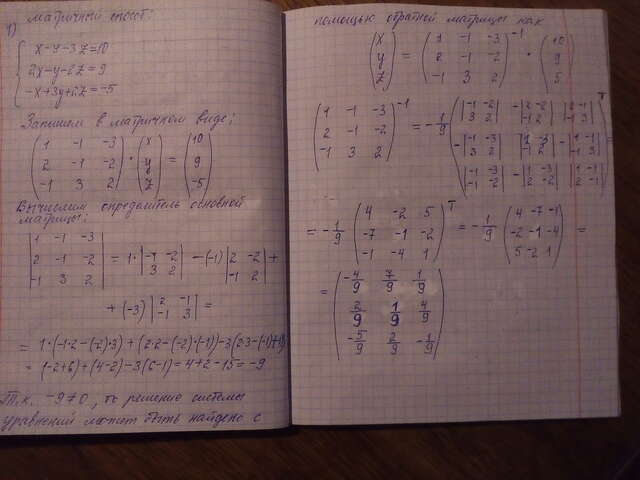 1) матричный способ:
x-y-3z=10
2x-y-2z=9
-x+3y+2z=-5
Запишем в матричном виде:
(1 -1 -3) (x) (10)
(2 -1 -2) · (y) = (9)
(-1 3 2) (z) (-5)
Вычислим определитель основной
матрицы:
|1 -1 -3|
|2 -1 -2| = 1·|-1 -2| -(-1)|2 -2| +
|-1 3 2| |3 2| |-1 2|
+(-3)|2 -1| =
|-1 3|
= 1·(-1·2-(-2)·3)+(2·2-(-2)·(-1))-3(2·3-(-1)·(-1))=
= (-2+6)+(4-2)-3(6-1)=4+2-15=-9
Т.к. -9≠0, то решение системы
уравнений может быть найдено с
помощью обратной матрицы как
(x) (1 -1 -3)-1 (10)
(y) = (2 -1 -2) · (9)
(z) (-1 3 2) (5)
(1 -1 -3)-1 (|-1 -2| -|2 -2| |2 -1|)T
(2 -1 -2) = -1/9 (|3 2| |-1 2| |-1 3|) =
(-1 3 2) (-|-1 -3| |1 -3| -|1 -1|)
(|3 2| |-1 2| |-1 3|)
(|-1 -3| -|1 -3| |1 -1|)
(|-1 -2| |2 -2| |2 -1|)
(4 -2 5)T (4 -7 -1)
= -1/9 (-7 -1 -2) = -1/9 (-2 -1 -4) =
(-1 -4 1) (5 -2 1)
(-4/9 7/9 1/9)
= (2/9 1/9 4/9)
(-5/9 2/9 -1/9)